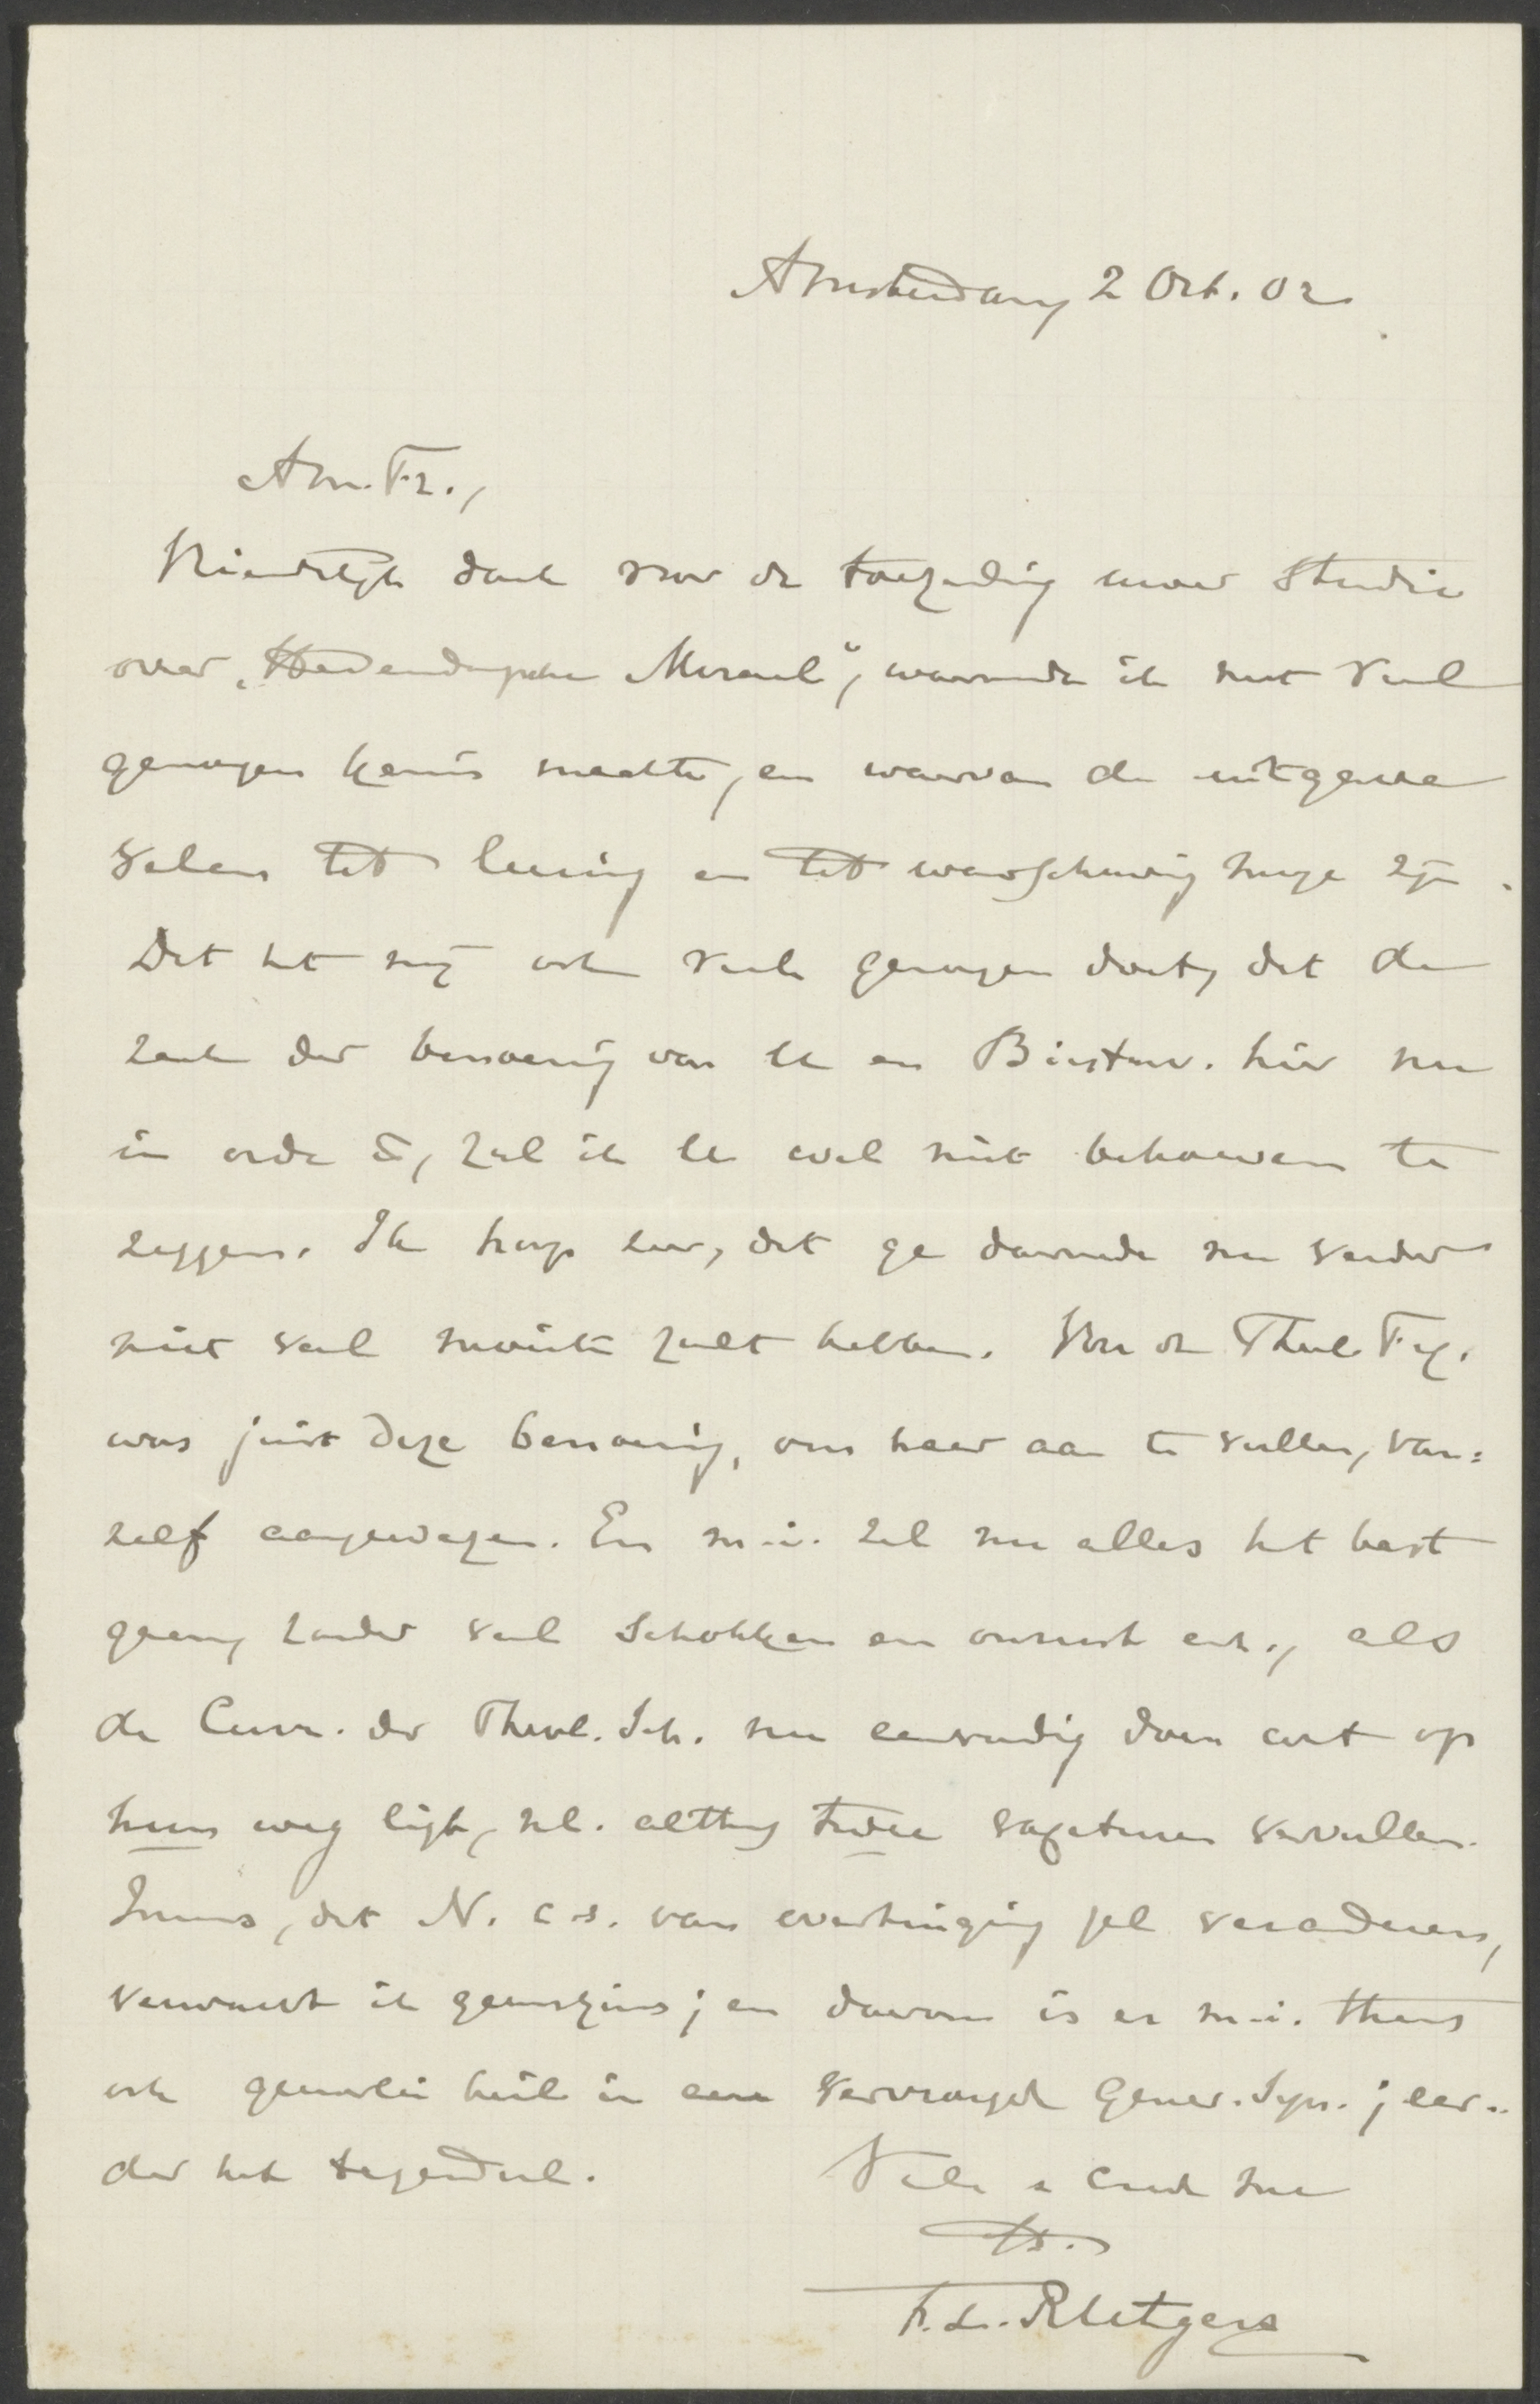 Amsterdam, 2 Oct. 02
Am. Fr.,
Vriendelijk dank voor de toezending uwer studie
over „Hedendaagsche Moraal", waarmede ik met veel
genoegen kennis maakte, en waarvan de uitgave
velen tot leering en tot waarschuwing moge zijn.
Dat het mij ook veel genoegen doet, dat de
zaak der benoeming van U en Biesterv. hier nu
in orde is, zal ik U wel niet behoeven te
zeggen. Ik hoop zeer, dat ge daarmede nu verder
niet veel moeite zult hebben. Voor de Theol. Fac.
was juist deze benoeming, om haar aan te vullen, van=
zelf aangewezen. En m.i. zal nu alles het best
gaan, zonder veel schokken en onrust enz., als
de Curr. der Theol. Sch. nu eenvoudig doen wat op
hun weg ligt, nl. althans twee vacaturen vervullen.
Immers, dat N. c.s. van overtuiging zal veranderen,
verwacht ik geenszins; en daarom is er m.i. thans
ook geenerlei heil in eene vervroegde Gener. Syn.; eer=
der het tegendeel.
Vale & crede me
tt.
F. L. Rutgers